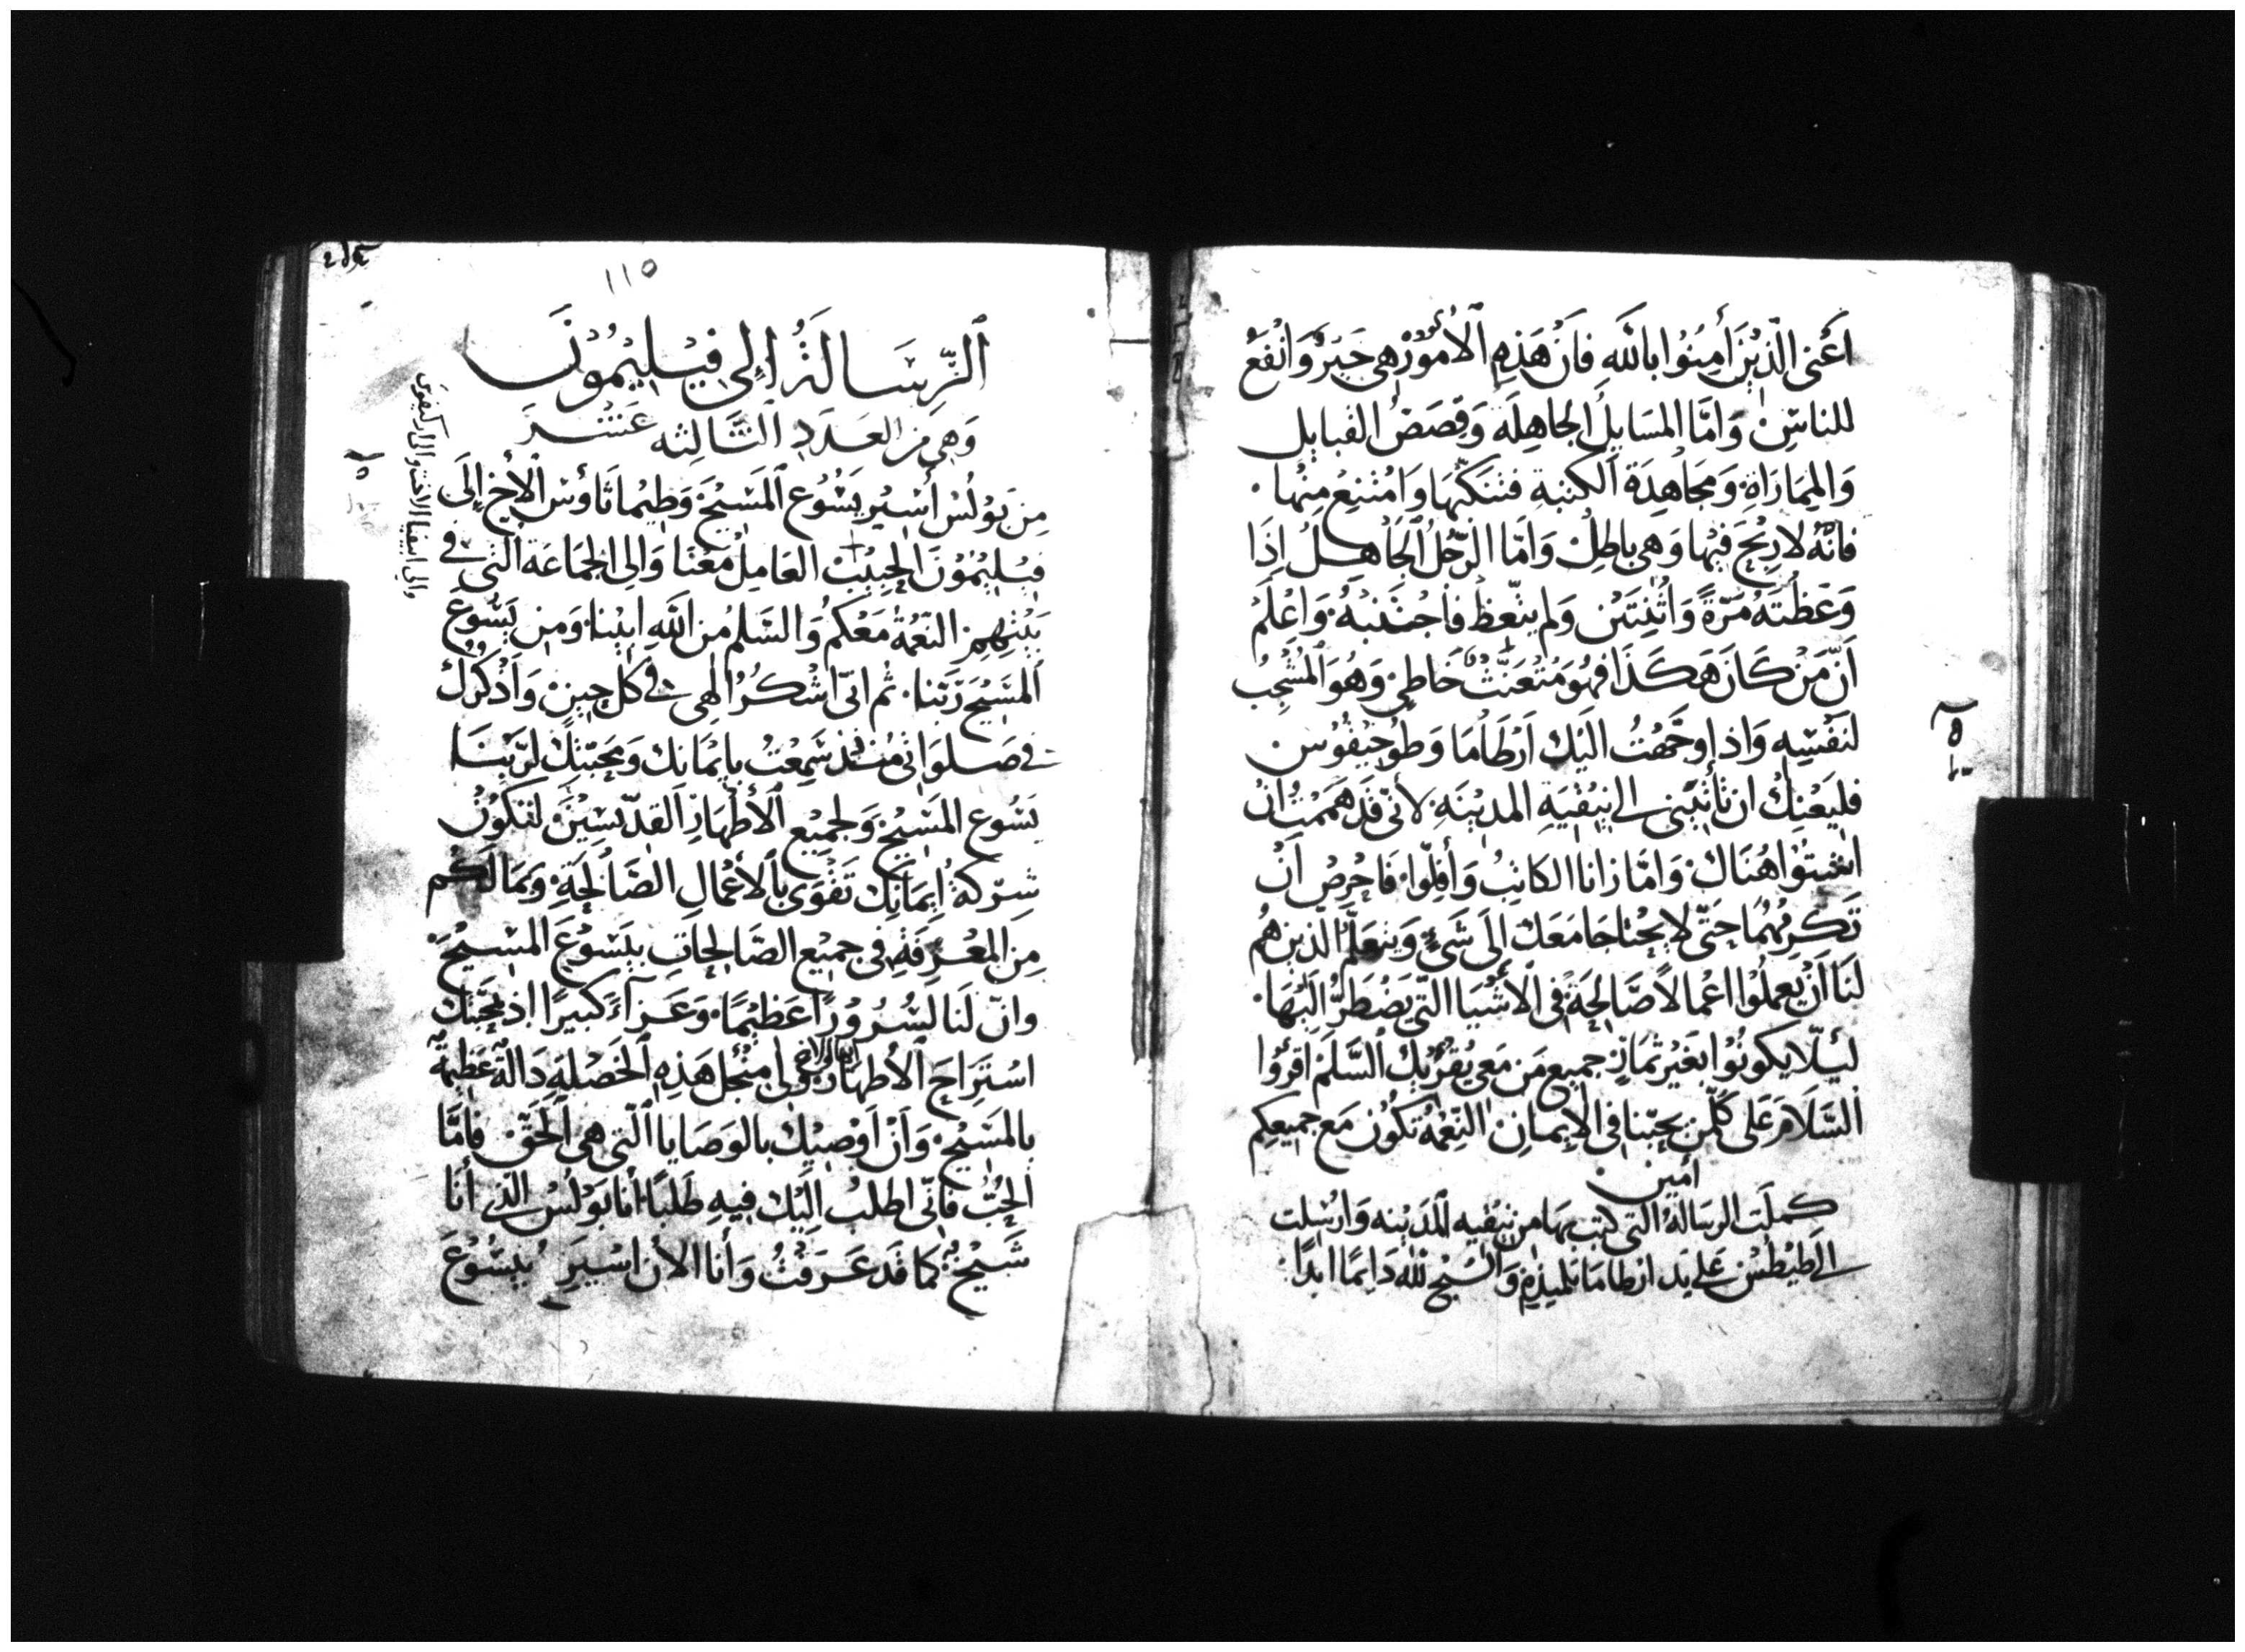 اَعْنى الَّذِيْنَ أَمِنُوْا بِاللَّهِ فَاَنْ هَذِهِ الْأُمُوْرْ هِى خَيْرٌ وَانْفَعْ
للناسِ وَامَّا المَسَايِلُ الجَاهِلَة وَقِصَصُ القبايل
وَالمِمَارَاة وَمجَاهِدَة الكتبة فتنكّبهَا وَامْتنِع مِنْها
فانهُ لا رِبْحَ فيهَا وَهى باطِلْ وَامَّا الرّجُلُ الجَاهلُ إِذَا
وَعَظْتَهُ مَرّةً وَاثْنِتَيْن وَلم يتّعِظْ فَاجْتَنبهُ وَاعْلَمْ
اَنّ مَنْ كَانَ هَكَذَا فهُوَ مُتعَنّتْ خَاطِى وَهُوَ المُشْجِبُ
لنَفْسِهِ وَاذا وجّهْتُ الَيْك اَرْطَامَا وَطوُخِيقُوْس
فليَعْنِك ان تَأتْيَنى الى نِيقْيَةِ المدِيْنَهِ لأنّى قَد هَمَمْتُ انْ
اشتوا هُنَاكْ وَامّا زانا الكاتِبُ وَأفلّوا فَاحْرِصْ اَنْ
تَكرِمُهُمَا حَتّى لا يحْتاجَا مَعَك الَى شَىءٍ وَيتعَلّمُ الّذين هُم
لنَا اَنْ يعملُوْا اعْمالاً صَالِحَة فى الأَشْيَا التّى يَضْطَرُّ الَيْهَا
ليَلّا يكونُوْا بغَيْر ثمَارٍ جميع مَن مَعى يُقْرِيْك السَّلَمْ اقرؤا
السَّلَامَ عَلى كُلّمن يحِبّنا فى الإِيمان النِّعْمَة تكُوْن مَع جميعِكم
أمين
كملَت الرسَالهُ التّى كتب بهَا من نيقيه المَدِيْنه وَارْسلت
الى طيْطُسْ عَلى يَد ارْطامَا تلميذهِ وَالسّبح لله دَايمًا ابدًا
١١٥
الرِّسَالَةُ إلى فِيْلِيْمُوْنَ
وَهِى مِن العَدَدِ الثَّالِثه عَشَرَ
مِن بَوْلُسْ أَسِيْر يَسُوْع المَسِيْحَ وَطِيْماثاؤسْ الأخ إِلَى
فِيْلِيْمُوْنَ الحِبِيْبْ العَامِلْ مَعْنَا وَالى الجَمَاعَة التى فى
بَيْتِهِم النّعْمَةُ مَعْكم وَالسَّلمُ من اللهِ ابِيْنا وَمِن يَسُوْع
المَسِيْح رَبّنا ثم انّى اشْكرُ الهى فى كل حِيْن وَاذْكُرُكَ
فى صَلوَاتى مُنْذ سَمِعْتُ بِايْمَانك وَمَحَبّتِكَ لرَبّنَا
يَسُوع المَسِيْح وَلجَمِيْع الأطْهَارِ القدّيسِيْنَ لتكوْن
شِرْكةُ اِيمَانِك تَقْوَى بالأعْمالِ الصّالحَةِ وَبمَا لكُم
مِن المَعْرِفَةِ فى جمِيْع الصّالحاتِ بيَسُوْعَ المسِيْحَ
وانّ لَنا لسُرُوْرًا عَظِيْمًا وَعَزآءً كبيرًا اذ بمحَبّتك
اسْتَرَاحَ الأطهَارُ ولى مِنْجل هَذِهِ الخَصْلهِ دَالةٌ عَظيمةٌ
بِالمَسِيْح وَاَنْ اَوْصِيْك بالوَصَايا الّتى هى الحَقّ فامَّا
الحُبُّ فانّى اطلبُ الَيْك فيهِ طَلَبًا انا بَوْلُسْ الّذى أنَا
شَيْخٌ كما قد عَرَفْتُ وَأنا الأن اسْيرَ بيسُوْعَ